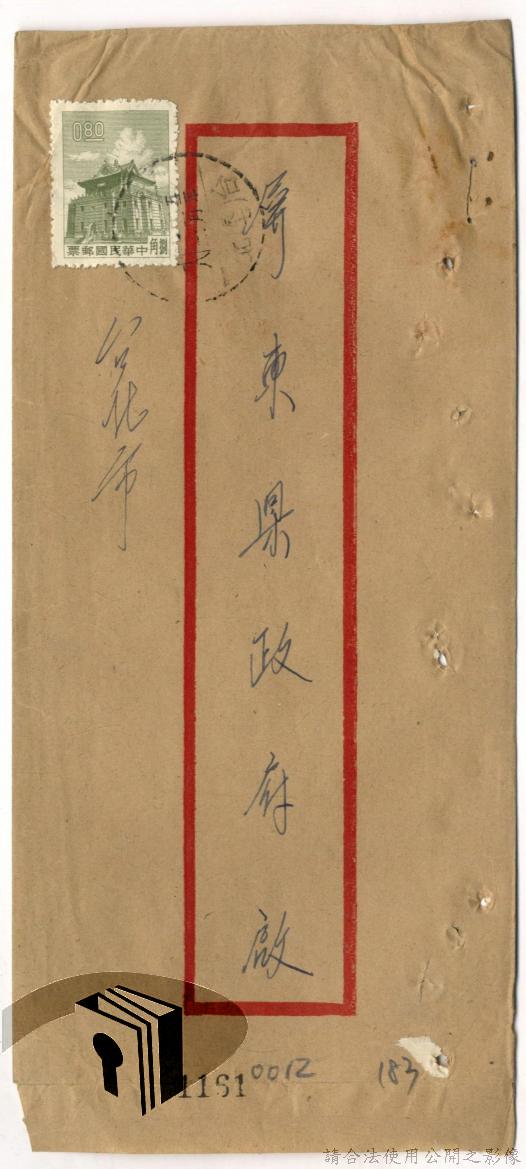 屏東県政府啟
台北市
0.80
票郵國民華中
角捌
1161
0012
183
請合法使用公開之影像